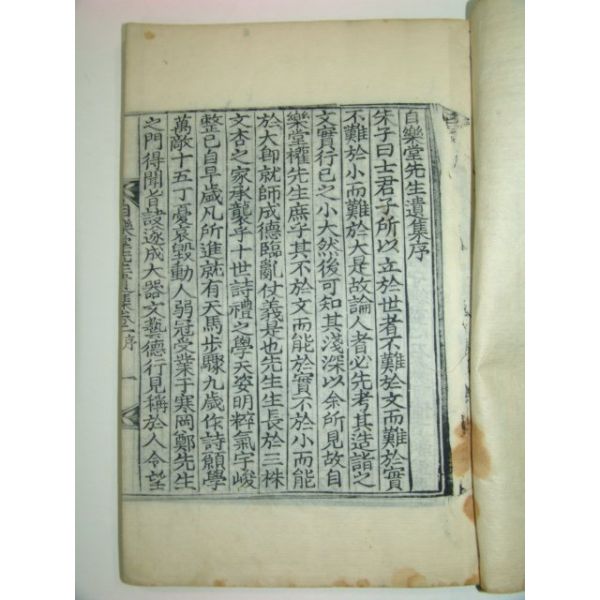 自樂堂先生遺集序
朱子曰士君子所以立於世者不難於文而難於實
不難於小而難於大是故論人者必先考其造諸之
文實行已之小大然後可知其淺深以余所見故自
樂堂權先生庶乎其不於文而能於實不於小而能
於大卽就師成德臨亂仗義是也先生生長於三株
文杏之家承襲乎十世詩禮之學天姿明粹氣宇峻
整已自早歲凡所進就有天馬步驟九歲作詩願學
萬敵十五丁憂哀毀動人弱冠受業于寒岡鄭先生
之門得聞旨訣遂成大器文藝德行見稱於人令望
自樂堂先生遺集 序 一